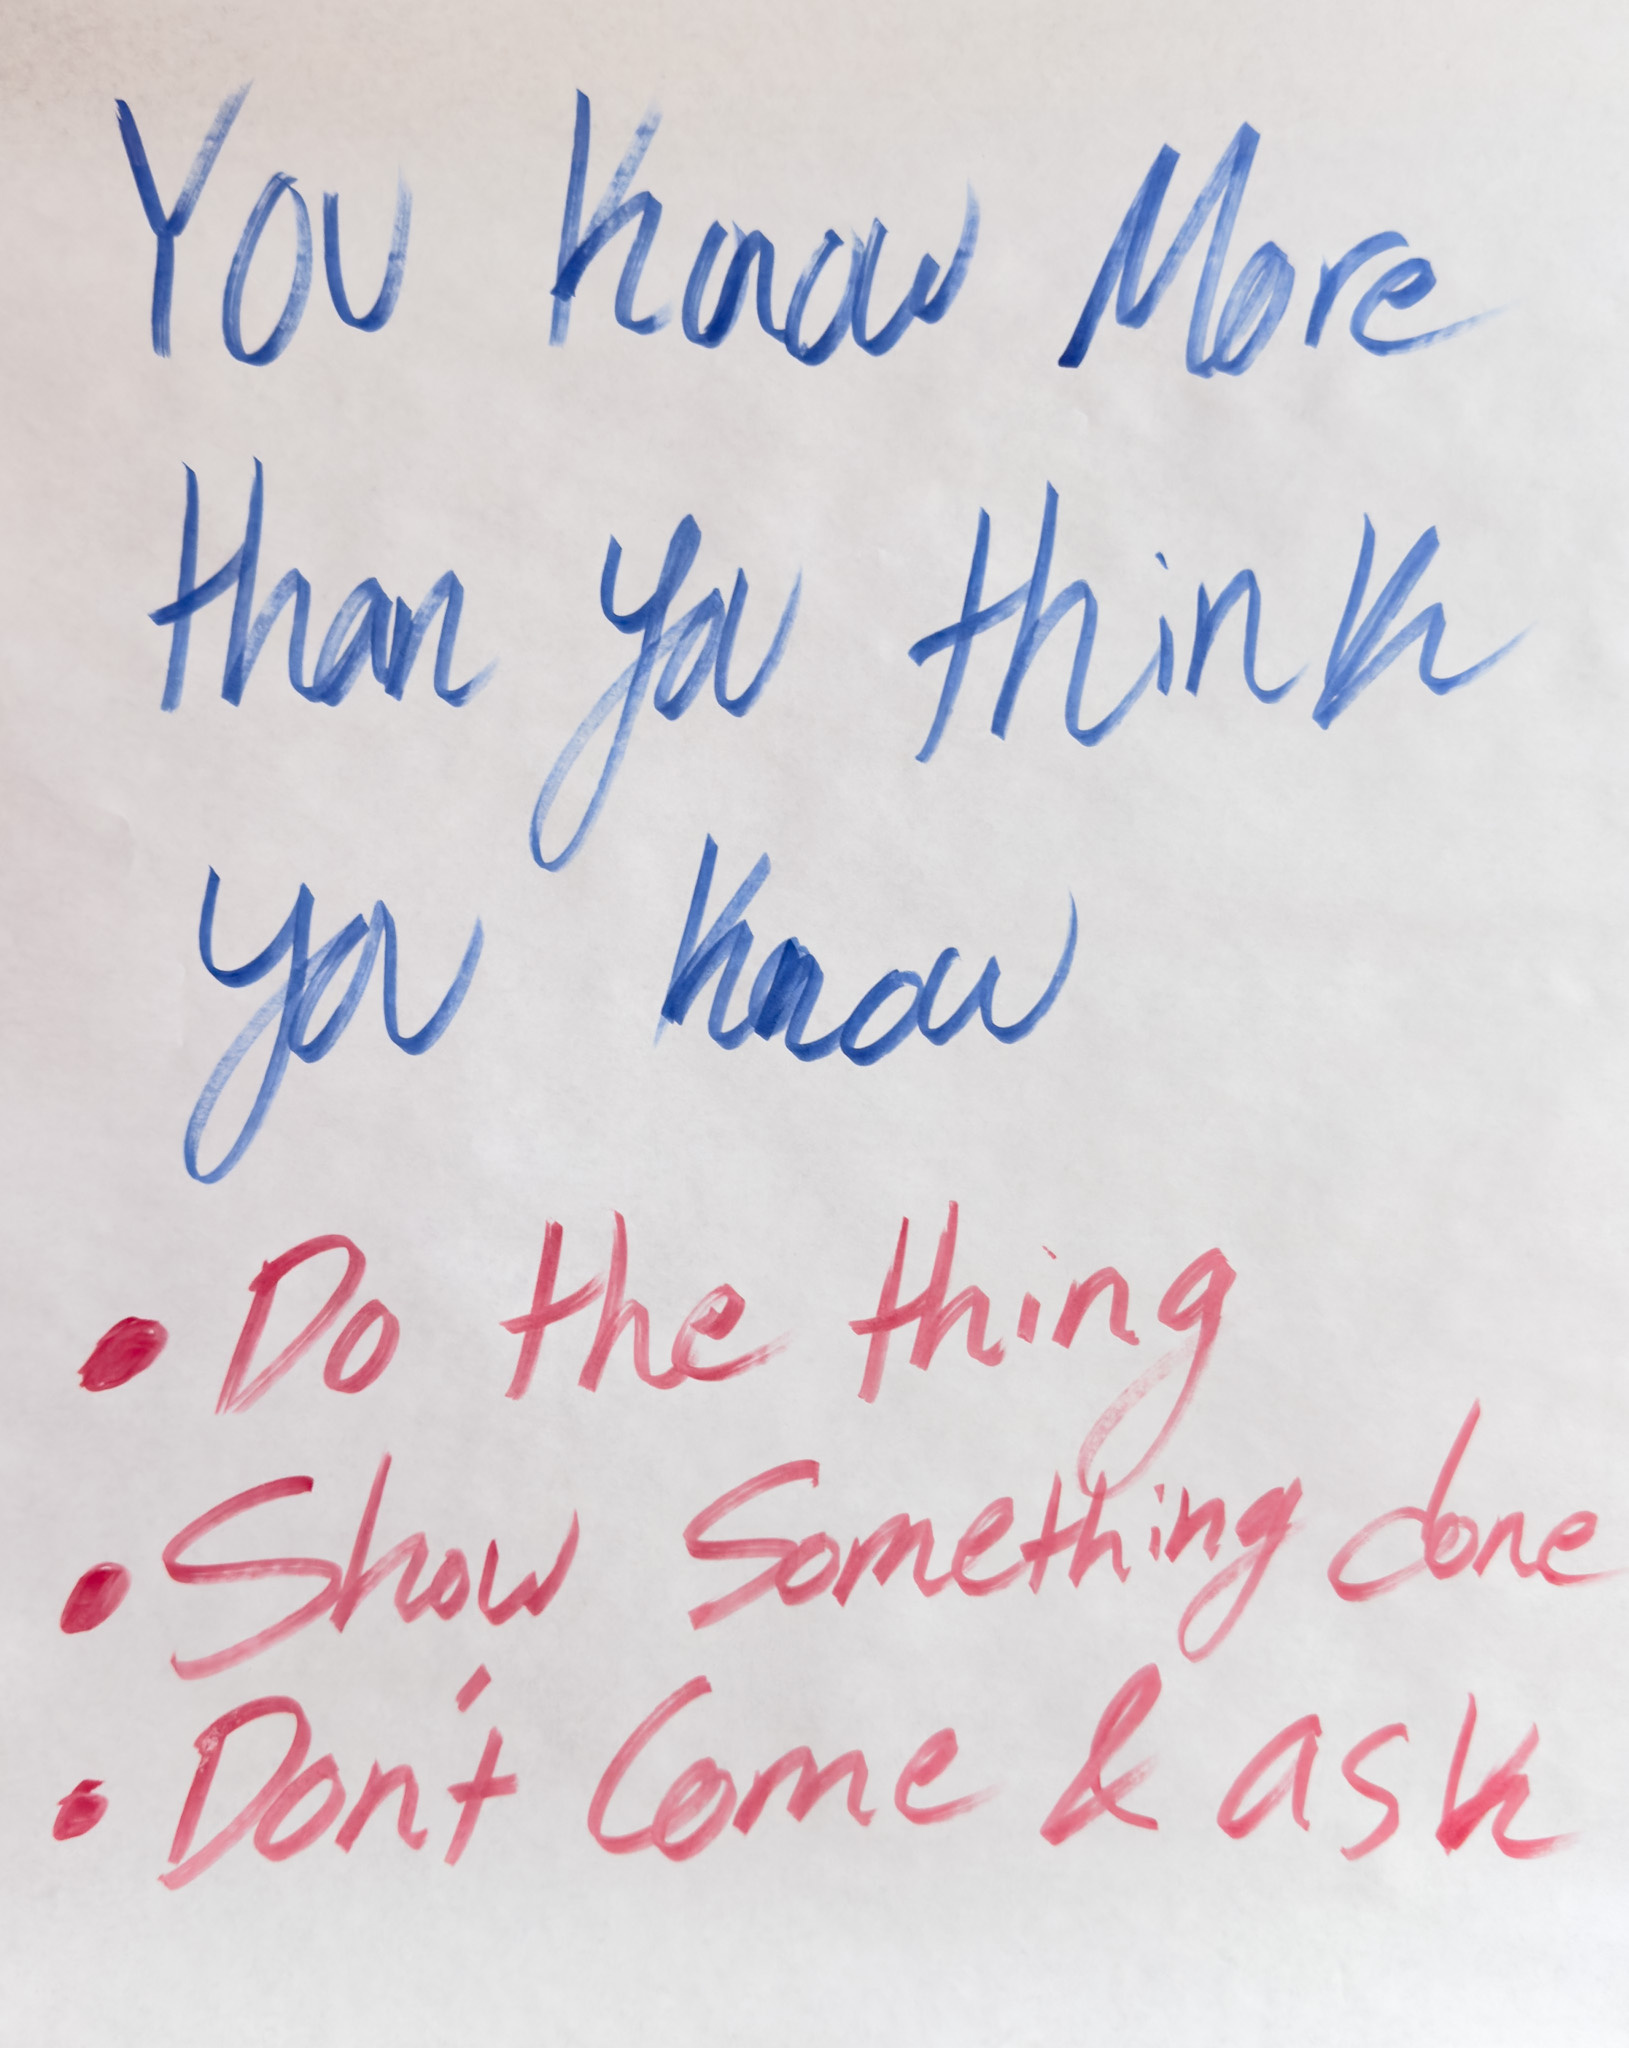 You Know More
than you think
you know
• Do the thing
• Show Something done
• Don't Come & ask